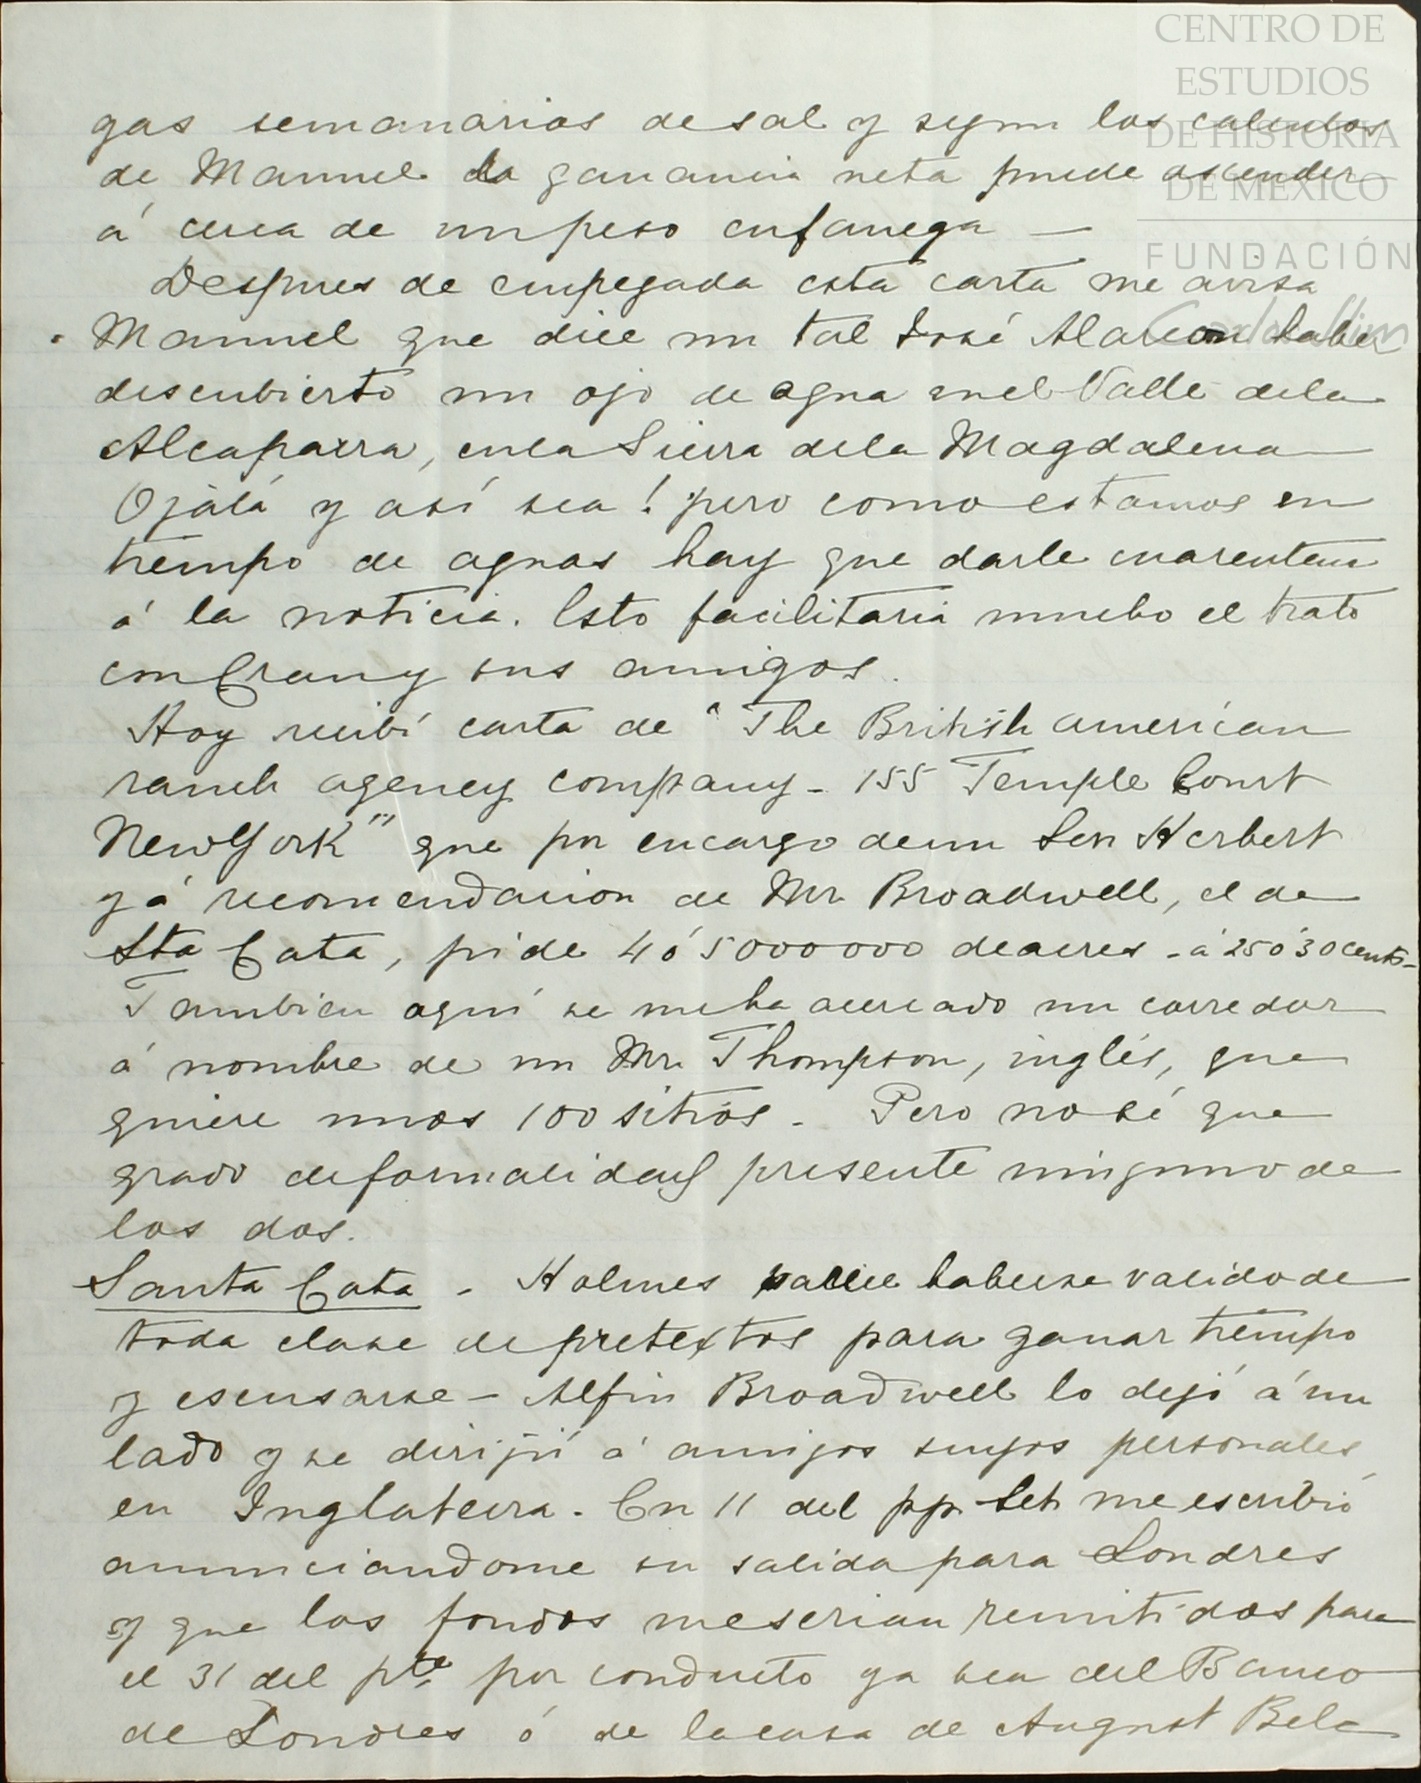 CENTRO DE
ESTUDIOS
DE HISTORIA
DE MEXICO
FUNDACIÓN
Carlos Slim
gas semanarias de sal y segun los calculos
de Manuel la ganancia neta puede ascender
á cerca de un peso en fanega —
Despues de empezada esta carta me avisa
Manuel que dice un tal José Alarcon haber
descubierto un ojo de agua en el Valle de la
Alcaparra, en la Sierra de la Magdalena
Ojalá y así sea! pero como estamos en
tiempo de aguas hay que darle cuarentena
á la noticia. Esto facilitaria mucho el trato
con Cran y sus amigos.
Hoy recibí carta de "The British american
ranch agency company - 155 Temple Court
New York" que por encargo de un Sen Herbert
y á recomendacion de Mr. Broadwell, el de
Sta Cata, pide 4 ó 5000000 de acres - á 25 ó 30 cents -
Tambien aquí se me ha acercado un corredor
á nombre de un Mr. Thompson, inglés, que
quiere unos 100 sitios - Pero no sé que
grado de formalidad presente ninguno de
los dos.
Santa Cata - Holmes parece haberse valido de
toda clase de pretextos para ganar tiempo
y escusarse - Al fin Broadwell lo dejó á un
lado y se dirijió á amigos suyos personales
en Inglaterra. En 11 del pp. Set. me escribió
anunciandome su salida para Londres
y que los fondos me serian remitidos para
el 31 del pte por conducto ya sea del Banco
de Londres ó de la casa de August Bel